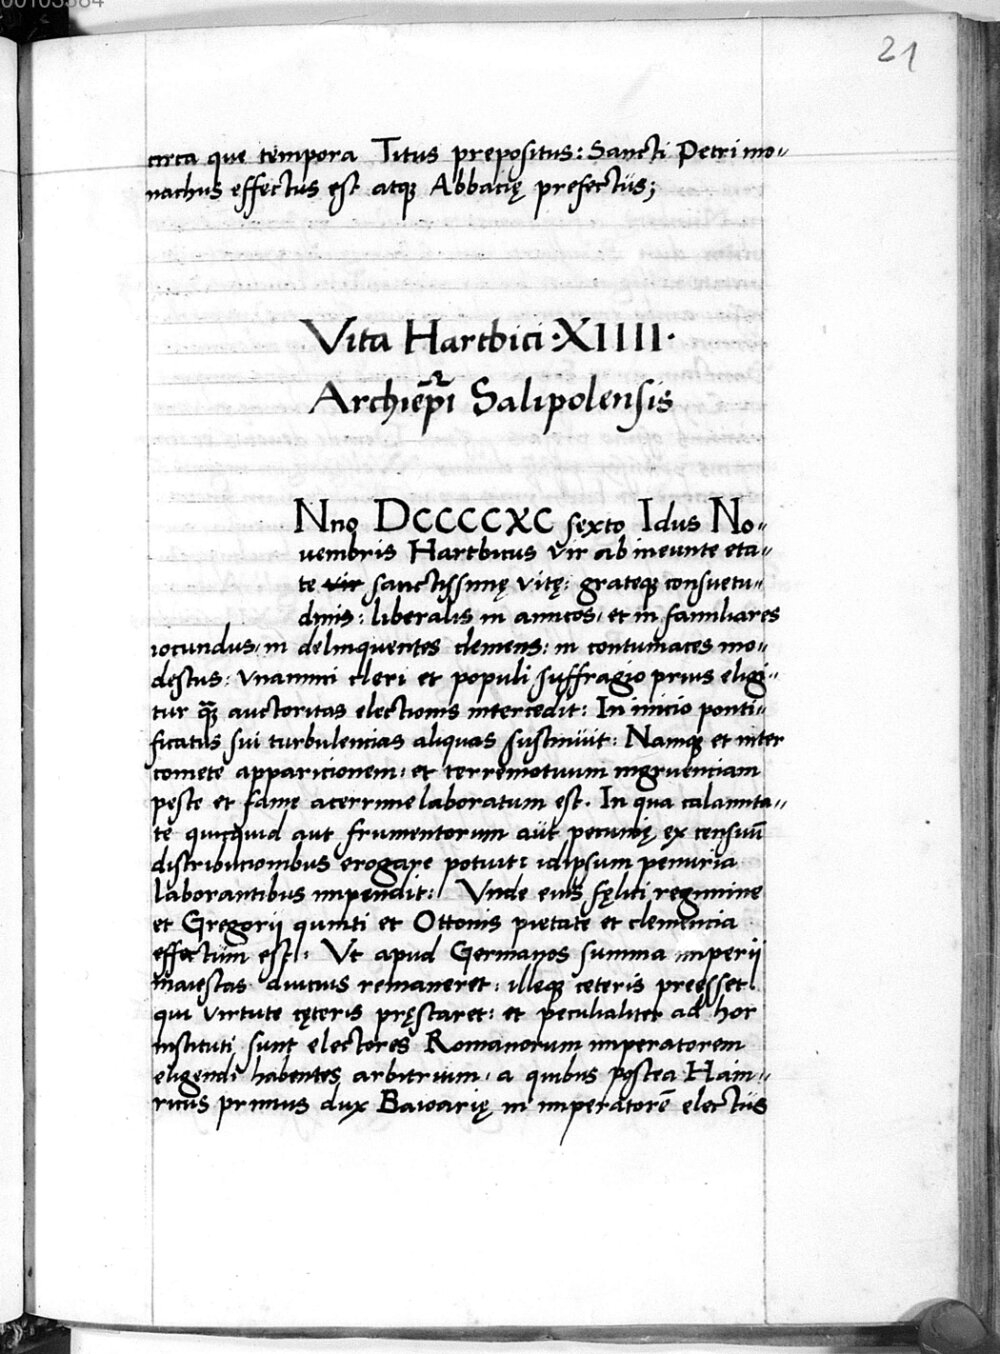 00103384
21
circa que tempora Titus prepositus: Sancti Petri mo-
nachus effectus est atqꝫ Abbacię prefectus;
Vita Hartbici ·XIIII·
Archiep̄i Salipolensis
Nno DCCCCXC sexto Idus No-
uembris Hartbicus vir ab ineunte eta-
te vir sanctissimę vitę: grateqꝫ consuetu-
dinis: liberalis in amicos, et in familiares
iocundus, in delinquentes clemens: in contumaces mo-
destus: Vnanimi cleri et populi suffragio prius eligi-
tur qꝫ auctoritas electionis intercedit: In inicio ponti-
ficatus sui turbulencias aliquas sustinuit: Namqꝫ et inter
comete apparicionem: et terremotuum ingruenciam
peste et fame acerrime laboratum est. In qua calamita-
te quicquid aut frumentorum aut pecunię ex censuū
distribucionibus erogare potuit: idipsum penuria
laborantibus impendit: Vnde eius fęlici regimine
et Gregorii quinti et Ottonis pietate et clemencia
effectum est: Vt apud Germanos summa imperii
maiestas diucius remaneret: illeqꝫ ceteris preesset
qui virtute cęteris pręstaret: et peculialiter ad hoc
instituti sunt electores Romanorum imperatorem
eligendi habentes arbitrium, a quibus postea Hain-
ricus primus dux Bawarię in imperatorē electus